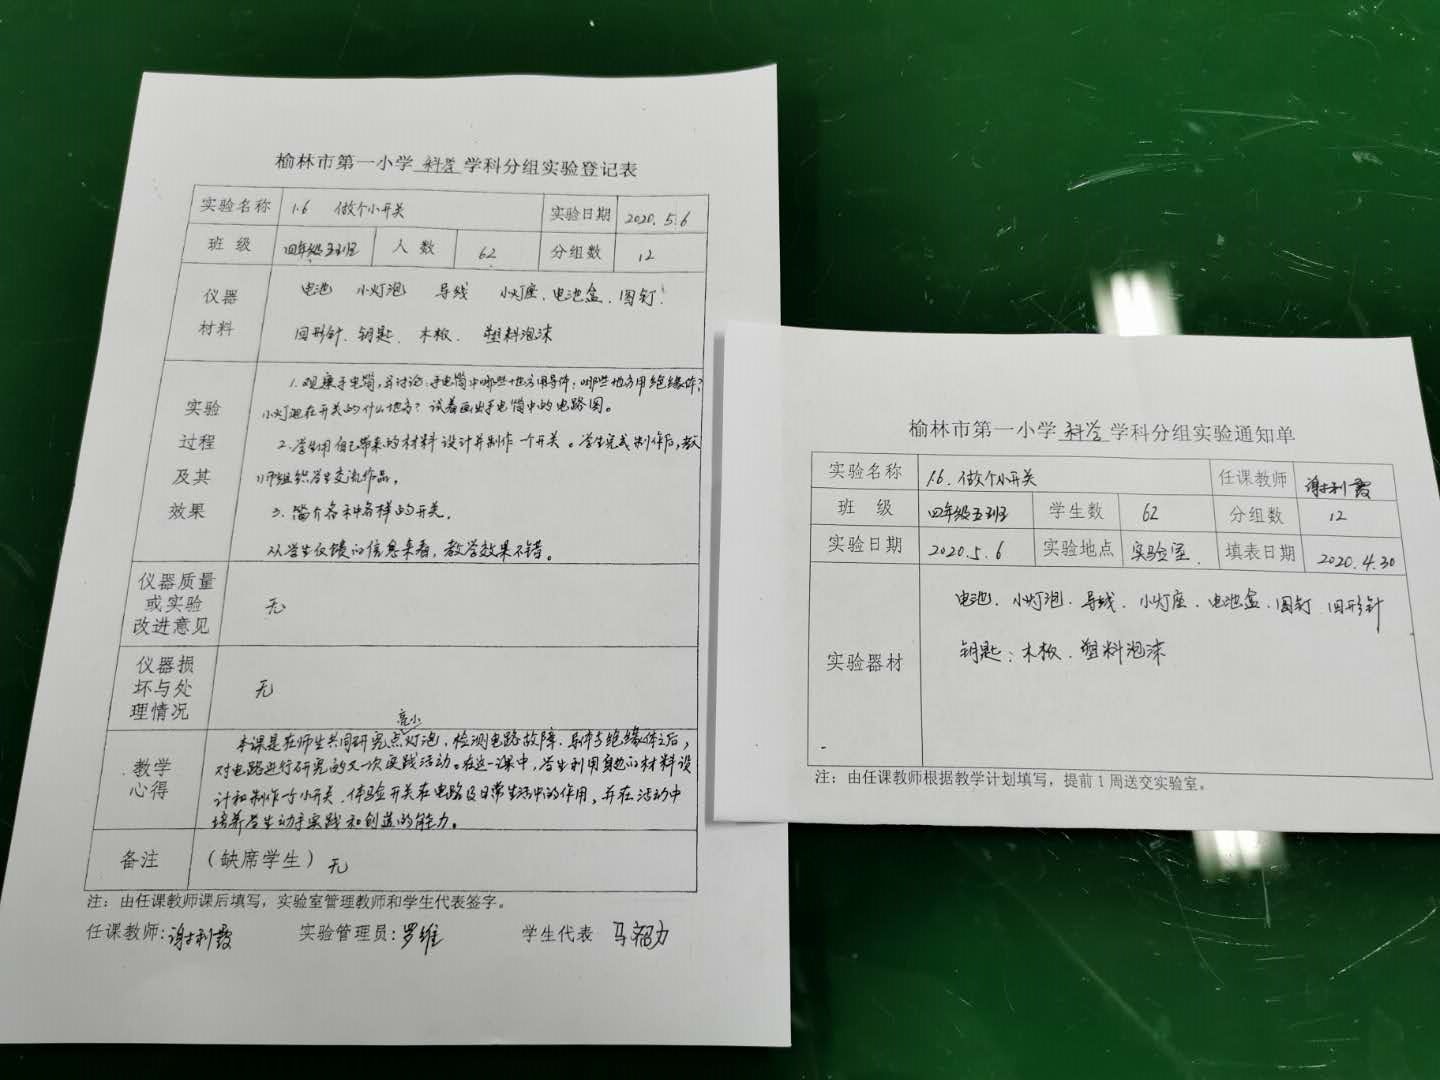 榆林市第一小学 科学 学科分组实验登记表
实验名称 1.6 做个小开关 实验日期 2020.5.6
班 级 四年级五班 人 数 62 分组数 12
仪器材料
电池 小灯泡 导线 小灯座、电池盒、图钉、
回形针、钥匙、木板、塑料泡沫
实验过程及其效果
1.观察手电筒,并讨论:手电筒中哪些地方用导体;哪些地方用绝缘体?
小灯泡在开关的什么地方?试着画出手电筒中的电路图。
2.学生用自己带来的材料设计并制作一个开关。学生完成制作后,教
师组织学生交流作品。
3.简介各种各样的开关。
从学生反馈的信息来看,教学效果不错。
仪器质量或实验改进意见 无
仪器损坏与处理情况 无
教学心得
亮小
本课是在师生共同研究点灯泡、检测电路故障、导体与绝缘体之后,
对电路进行研究的又一次实践活动。在这一课中,学生利用身边的材料设
计和制作个小开关,体验开关在电路及日常生活中的作用,并在活动中
培养学生动手实践和创造的能力。
备注 (缺席学生) 无
注:由任课教师课后填写,实验室管理教师和学生代表签字。
任课教师:谢利霞 实验管理员:罗维 学生代表 马
榆林市第一小学 科学 学科分组实验通知单
实验名称 1.6.做个小开关 任课教师 谢利霞
班 级 四年级五班 学生数 62 分组数 12
实验日期 2020.5.6 实验地点 实验室. 填表日期 2020.4.30
实验器材
电池、小灯泡、导线、小灯座、电池盒、图钉、回形针
钥匙;木板、塑料泡沫
注:由任课教师根据教学计划填写,提前1周送交实验室。